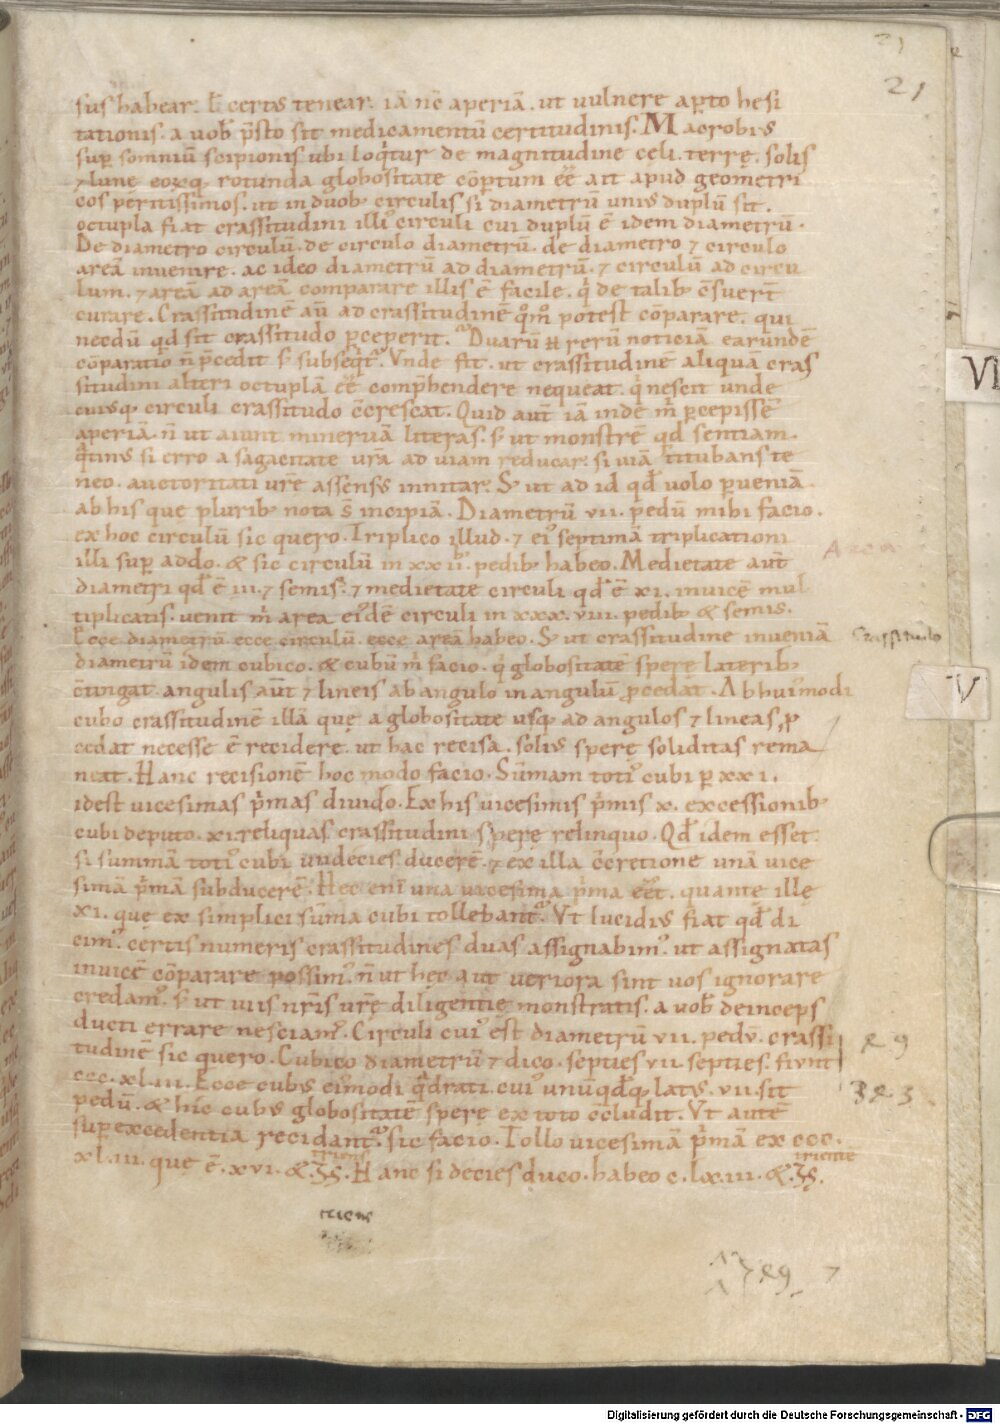 21
21
sus habear. ł certus tenear. iā nc̄ aperiā. ut uulnere apto hesi
tationis. a uob p̄sto sit medicamentū certitudinis. Macrobius
sup somniū scipionis ubi loqtur de magnitudine celi. terrę. solis
⁊ lunę eoꝝq rotunda globositate cōptum eē ait apud geometri
cos peritissimos. ut in duob circulis si diametrū unius duplū sit.
octupla fiat crassitudini illiꝰ circuli cui duplū ē idem diametrū.
De diametro circulū. de circulo diametrū. de diametro ⁊ circulo
areā inuenire. ac ideo diametrū ad diametrū. ⁊ circulū ad circu
lum. ⁊ areā ad areā comparare illis ē facile. q de talib c̄suert̄
curare. Crassitudinē aū ad crassitudinē qm̊ potest cōparare. qui
necdū qd sit crassitudo pceperit. Duarū rerū noticiā earundē
cōparatio n̄ p̄cedit s; subseqt̄. Vnde fit. ut crassitudinē aliquā cras
situdini alteri octuplā eē comp̄hendere nequeat. q nescit unde
cuiusq circuli crassitudo c̄crescat. Quid aut̄ iā inde m̄ pcepissē
aperiā. n̄ ut aiunt mineruā literas. s; ut monstrē qd sentiam.
qtinus si erro a sagacitate ur̄a ad uiam reducar. si uiā titubans te
neo. auctoritati ur̄e assensus innitar. S; ut ad id qd uolo pueniā
ab his quę plurib nota s̄ incipiā. Diametrū vii. pedū mihi facio.
ex hoc circulū sic quero. Triplico illud. ⁊ eiꝰ septimā triplicationi
illi sup addo. & sic circulū in xx ii. pedib habeo. Medietate aut̄
diametri qd ē iii. ⁊ semis. ⁊ medietate circuli qd ē xi. inuicē mul
tiplicatis. uenit m̄ area eiꝰdē circuli in xxx. viii. pedib & semis.
Ecce diametrū ecce circulū. ecce areā habeo. S; ut crassitudine inueniā
Crassitudo
diametrū idem cubico. & cubū m̄ facio. q globositatē sperę laterib
c̄tingat. angulis aut̄ ⁊ lineis ab angulo in angulū pcedat. Ab huiꝰmodi
cubo crassitudinē illā quę a globositate usq ad angulos ⁊ lineas p
cedat necesse ē recidere. ut hac recisa. solius sperę soliditas rema
neat. Hanc recisionē hoc modo facio. Sūmam totiꝰ cubi p xxi.
idest uicesimas p̄mas diuido. Ex his uicesimis p̄mis x. excessionib
cubi deputo. xi. reliquas crassitudini sperę relinquo. Qd idem esset
si summā totiꝰ cubi undecies ducerē. ⁊ ex illa c̄cretione unā uice
simā p̄mā subducerē. Hec enī una uicesima p̄ma eēt. quantę ille
xi. quę ex simplici sūma cubi tollebant̄. Vt lucidius fiat qd di
cimꝰ. certis numeris crassitudines duas assignabimꝰ. ut assignatas
inuicē cōparare possimꝰ. n̄ ut hęc aut ueriora sint uos ignorare
credamꝰ. s; ut uiis nr̄is ur̄ę diligentię monstratis. a uob deinceps
ducti errare nesciamꝰ. Circuli cuiꝰ est diametrū vii. pedū. crassi
tudinē sic quero. Cubico diametrū ⁊ dico. septies vii. septies. fiunt
ccc. xl. iii. Ecce cubus eiꝰmodi qdrati. cuiꝰ unūqdq latus. vii. sit
343
pedū. & hic cubus globositatē sperę ex toto c̄cludit. Vt autē
supexcedentia recidant̄. sic facio. Tollo uicesimā p̄mā ex ccc.
xl. iii. que ē. xvi. & . Hanc si decies duco. habeo c. lx. iii. & .
triens
triente
VI
V
Digitalisierung gefördert durch die Deutsche Forschungsgemeinschaft - DFG